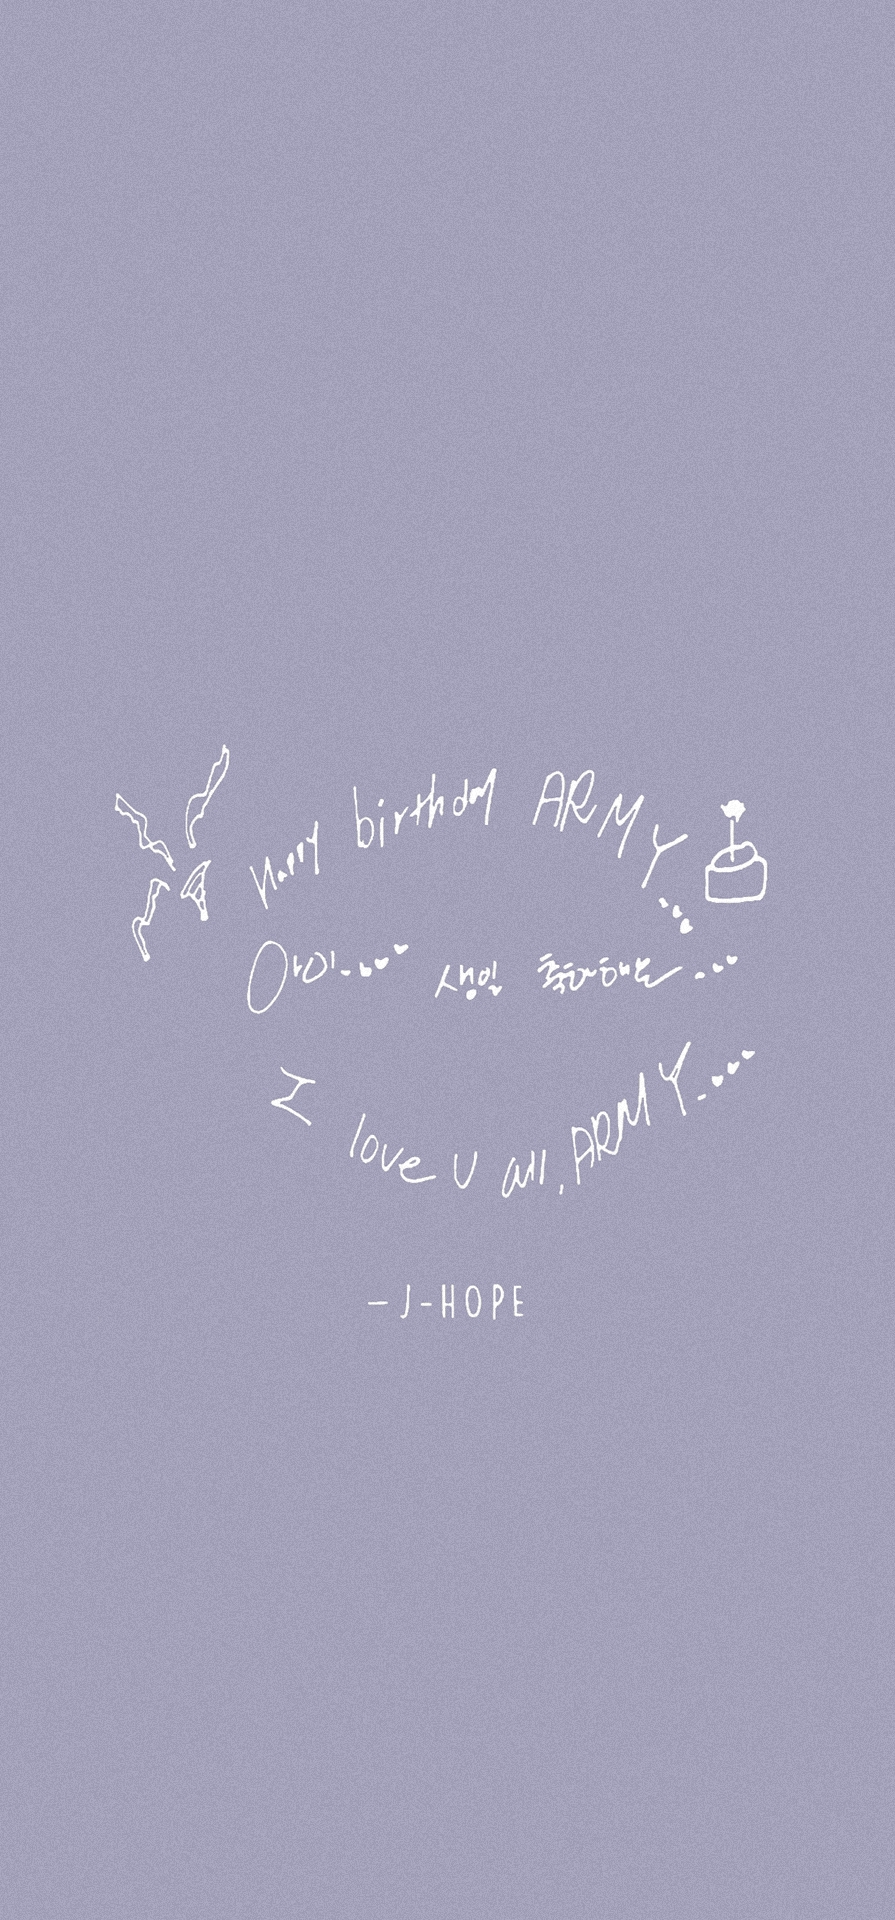 Happy birthday ARMY
아미... 생일 축하해요...
I love U all, ARMY...
-J-HOPE